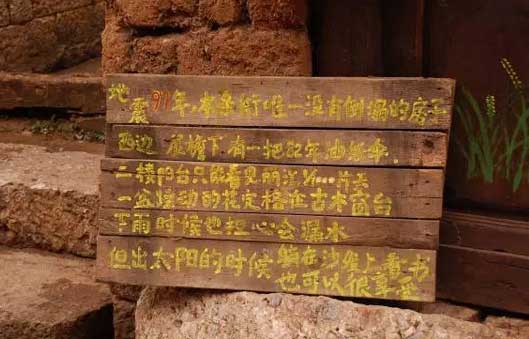 地震911年,本条街唯一没有倒塌的房子
西边 屋檐下,有一把82年油纸伞.
二楼的台只能看见門沿
一盆 动的花定格在古木窗台
下雨时候也担心会漏水
但出太阳的时候 躺在沙发上看书
也可以很享受